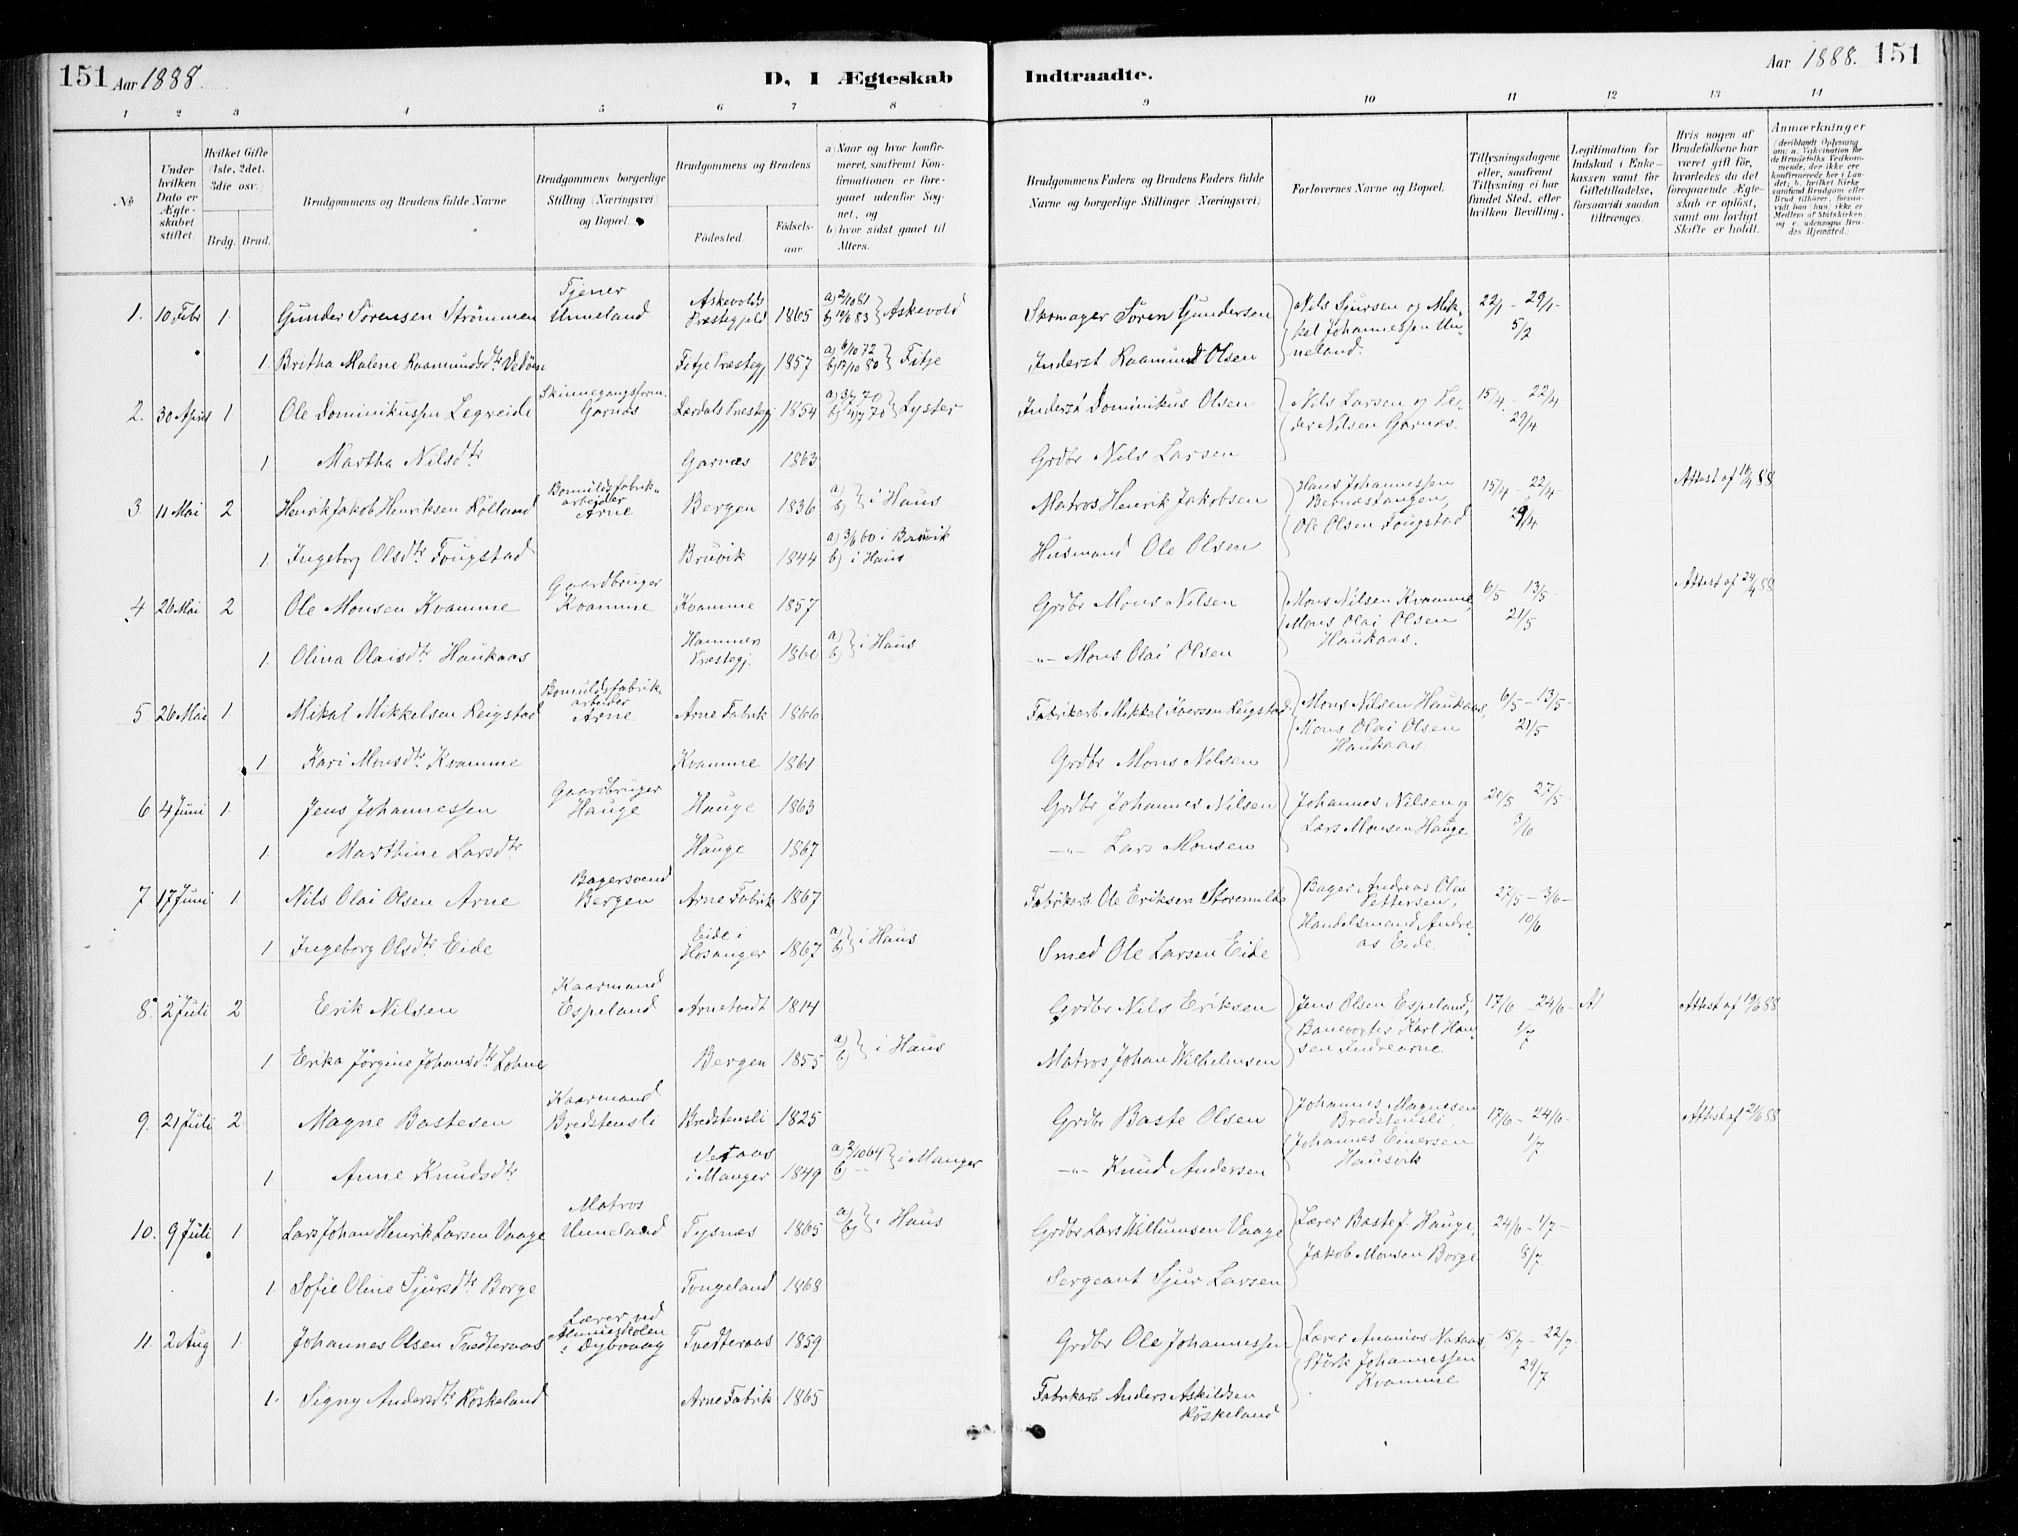 151 Aar 1888. D, I Ægteskab Indtraadte. Aar 1888. 151
1 2 3 4 5 6 7 8 9 10 11 12 13 14
No
Under hvilken Dato er Ægteskabet stiftet.
Hvilket Gifte (1ste, 2det, 3die osv.)
Brdg. Brud.
Brudgommens og Brudens fulde Navne
Brudgommens borgerlige Stilling (Næringsvei) og Bopæl.
Brudgommens og Brudens
Fødested.
Fødsels-aar.
a) Naar og hvor konfirmeret, saafremt Konfirmationen er foregaaet udenfor Sognet, og
b) hvor sidst gaaet til Alters.
Brudgommens Faders og Brudens Faders fulde Navne og borgerlige Stillinger (Næringsvei).
Forlovernes Navne og Bopæl.
Tillysningsdagene eller, saafremt Tillysning ei har fundet Sted, efter hvilken Bevilling.
Legitimation for Indskud i Enkekassen samt for Giftetilladelse, forsaavidt saadan tiltrænges.
Hvis nogen af Brudefolkene har været gift før, hvorledes da det foregaaende Ægteskab er opløst, samt om lovligt Skifte er holdt.
Anmærkninger
1. 10 Febr 1. Gunder Sørensen Strømmen Tjener Unneland Askevolds Præstegjeld 1865 a) 2/10 81 b) 10/6 83 } Askevold Skomager Søren Gundersen Nils Sjursen og Mikkel Johannessen Unneland. 22/1 - 29/1 - 5/2
1. Britha Malene Raamundsdtr Vedøen Fitje Præstegj 1857 a) 6/10 72 b) 17/10 80 } Fitje Inderst Raamund Olsen
2. 30 April 1 Ole Dominikussen Legreide Skinnegangsform. Garnæs Lærdals Præstegj 1854 a) 3/7 70 b) 4/7 70 } Lyster Inderst Dominikus Olsen Nils Larsen og Peder Nilsen Garnæs. 15/4 - 22/4 29/4
1 Martha Nilsdtr Garnæs 1863 Grdbr Nils Larsen
3 11 Mai 2 Henrik Jakob Henriksen Rølland Bomuldsfabrikarbeider Arne Bergen 1836 a) b) } i Haus Matros Henrik Jakobsen Hans Johannessen Bernæstangen, Ole Olsen Fougstad 15/4 - 22/4 - 29/4 Attest af 16/4 88
1. Ingeborg Olsdtr Fougstad Bruvik 1844 a) 3/6 60 i Bruvik b) i Haus Husmand Ole Olsen
4 26 Mai 2 Ole Monsen Kvamme Gaardbruger Kvamme Kvamme 1857 Grdbr Mons Nilsen Mons Nilsen Kvamme, Mons Olai Olsen Haukaas. 6/5 - 13/5 - 21/5 Attest af 24/4 88
1. Olina Olaisdtr Haukaas Hammers Præstegj. 1860 a) b) } i Haus -"- Mons Olai Olsen
5 26 Mai 1 Mikal Mikkelsen Reigstad Bomuldsfabrikarbeider Arne Arne Fabrik 1866 Fabrikarb Mikkel Iversen Reigstad Mons Nilsen Haukaas, Mons Olai Olsen Haukaas 6/5 - 13/5 - 21/5
1 Kari Monsdtr Kvamme Kvamme 1861 Grdbr Mons Nilsen
6. 4 Juni 1. Jens Johannessen Gaardbruger Hauge Hauge 1863 Grdbr Johannes Nilsen Johannes Nilsen og Lars Monsen Hauge 21/5 27/5 - 3/6
1. Marthine Larsdtr Hauge 1867 -"- Lars Monsen
7. 17 Juni 1 Nils Olai Olsen Arne Bagersvend Bergen Arne Fabrik 1867 Fabrikarb Ole Eriksen Storemilde Bager Andreas Olai Pettersen, Handelsmand Andreas Eide. 27/5 - 3/6 - 10/6
1 Ingeborg Olsdtr Eide Eide i Hosanger 1867 a) b) } i Haus Smed Ole Larsen Eide
8. 2 Juli 2 Erik Nilsen Kaarmand Espeland Arnetvedt 1814 Grdbr Nils Eriksen Jens Olsen Espeland, Banevogter Karl Hansen Indrearne 17/6 - 24/6 - 1/7 A! Attest af 19/6 88
1 Erika Jørgine Johansdtr Lohne Bergen 1855 a) b) } i Haus Matros Johan Wilhelmsen
9. 21 Juli 2. Magne Bastesen Kaarmand Bredstensli Bredstensli 1825 Grdbr Baste Olsen Johannes Magnesen Bredstensli, Johannes Einersen Hausvik 17/6 - 24/6 - 1/7 Attest af 2/6 88
1 Anne Knudsdtr i Manger 1849 a) 2/10 64 b) -"- } i Manger -"- Knud Andersen
10. 9 Juli 1. Lars Johan Henrik Larsen Vaage Matros Unneland Tysnæs 1865 a) b) } i Haus Grdbr Lars Willumsen Vaage Lærer Baste J. Hauge, Jakob Monsen Borge 24/6 - 1/7 - 8/7
1. Sofie Oline Sjursdtr Borge Tongeland 1868 Sergeant Sjur Larsen
11. 2 Aug 1. Johannes Olsen Tvedteraas Lærer ved Almueskolen i Dybvaag Tvedteraas 1859 Grdbr Ole Johannessen Lærer Ananias Nataas, Størk Johannessen Kvamme 15/7 - 22/7 29/7
1. Signy Andersdtr Røskeland Arne Fabrik 1865 Fabrikarb Anders Askildsen Røskeland